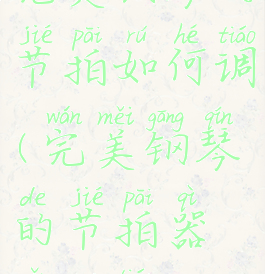 jié pāi rú hé tiáo
节拍如何调
wán měi gāng qín
(完美钢琴
de jié pāi qì
的节拍器